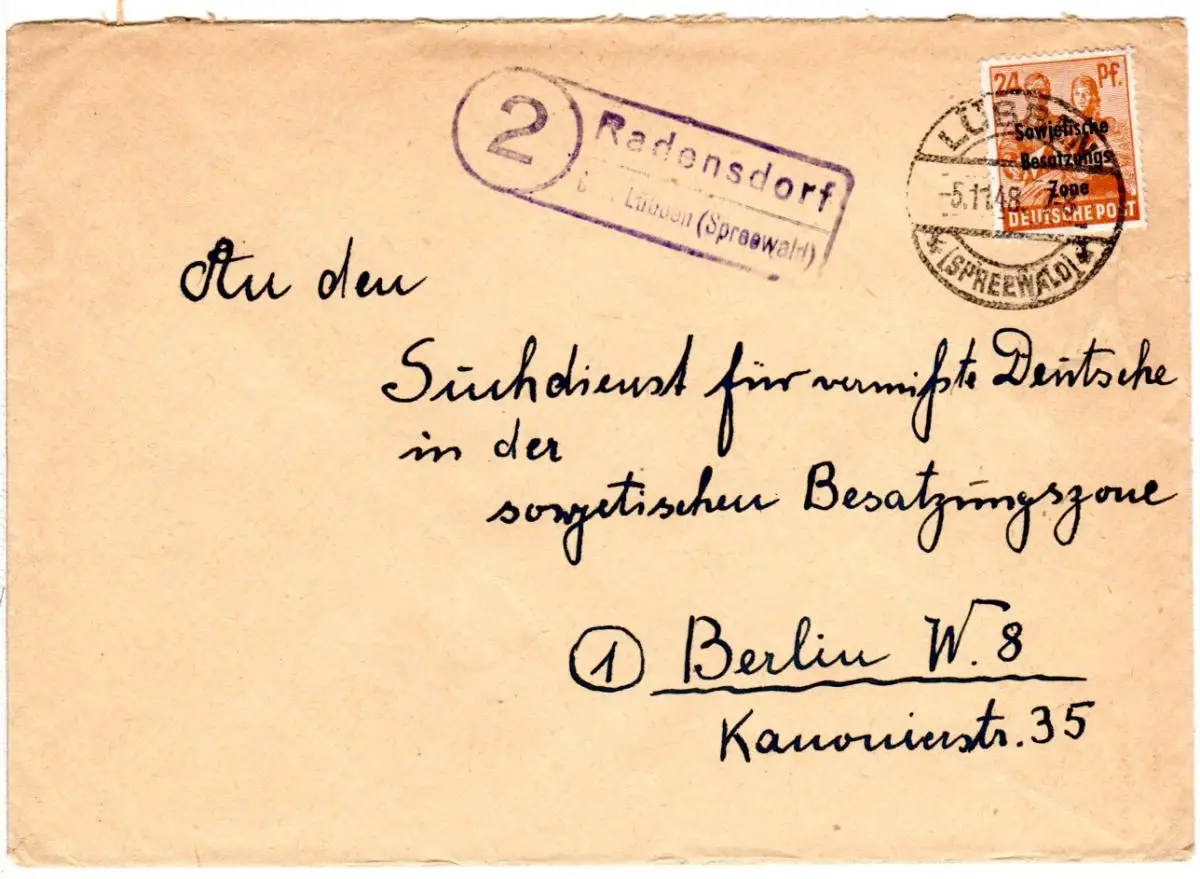 2
Radensdorf
Lübben (Spreewald)
24 Pf.
Sowjetische
Besatzungs
Zone
DEUTSCHE POST
-5.11.48.
(SPREEWALD)
An den
Suchdienst für vermißte Deutsche
in der
sowjetischen Besatzungszone
1 Berlin W. 8
Kanonierstr. 35